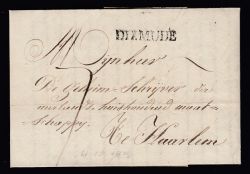 DIXMUDE
Mynheer
De Geheim-Schrijver der
huishoudend maat-
schappy.
Te Haarlem